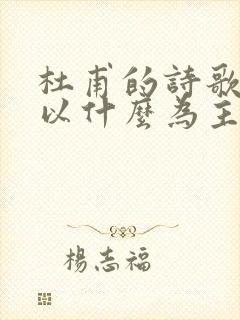 杜甫的詩歌
以什麼為主
楊志福